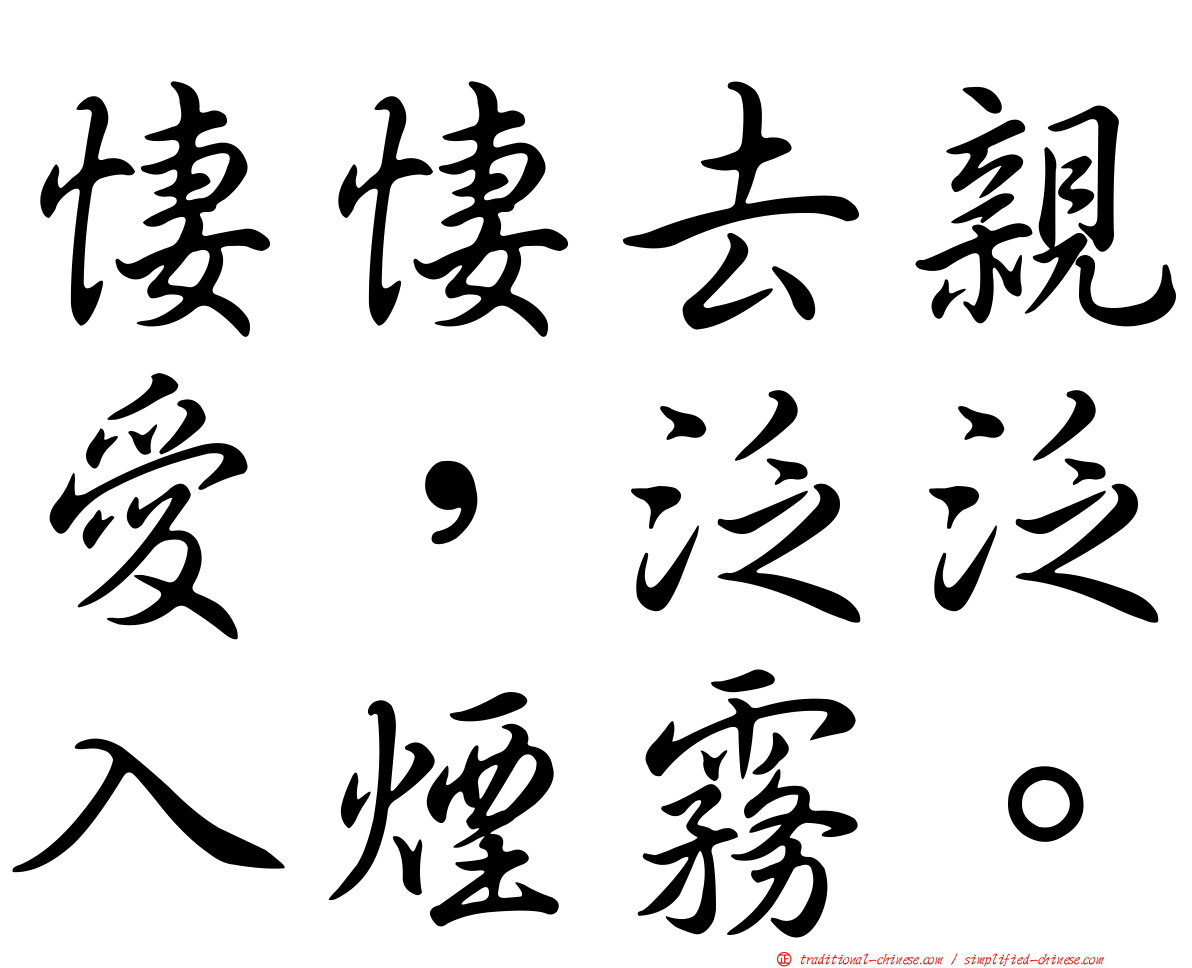 悽悽去親
愛，泛泛
入煙霧。
正 traditional-chinese.com / simplified-chinese.com